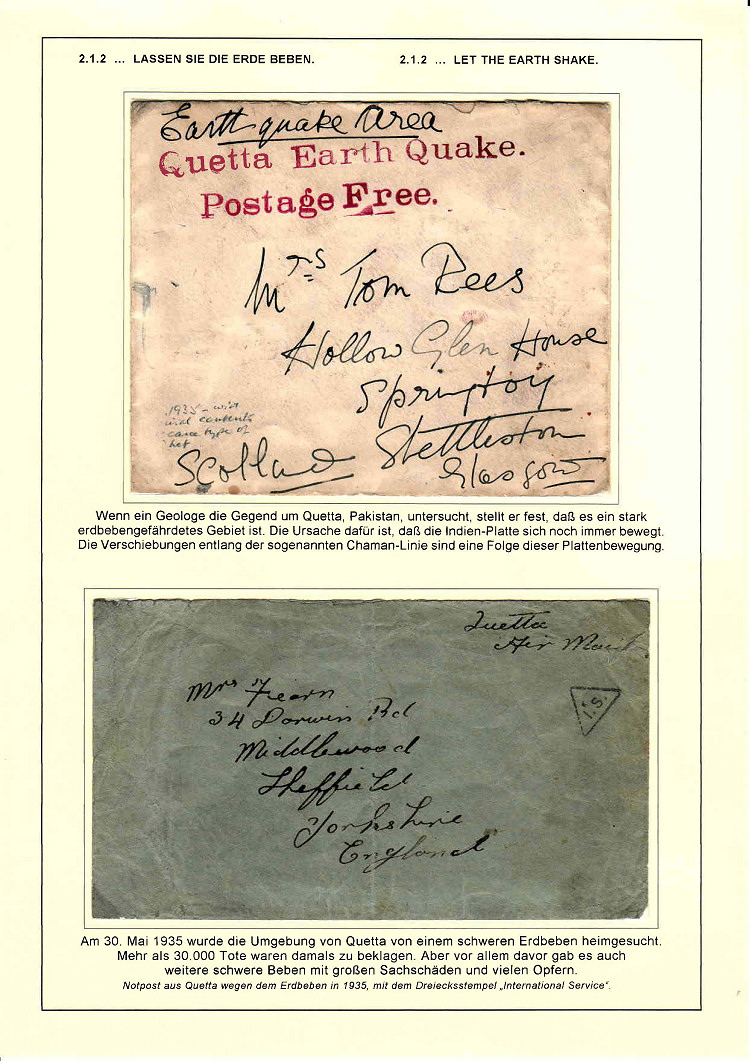 2.1.2 ... LASSEN SIE DIE ERDE BEBEN. 2.1.2 ... LET THE EARTH SHAKE.
Earthquake Area
Quetta Earth Quake.
Postage Free.
Mrs Tom Rees
Hollow Glen House
Springboig
Shettleston
Glasgow
Scotland
1935 - with
contents
type of
Wenn ein Geologe die Gegend um Quetta, Pakistan, untersucht, stellt er fest, daß es ein stark
erdbebengefährdetes Gebiet ist. Die Ursache dafür ist, daß die Indien-Platte sich noch immer bewegt.
Die Verschiebungen entlang der sogenannten Chaman-Linie sind eine Folge dieser Plattenbewegung.
Quetta
Air Mail
I.S.
Mrs Fearn
34 Dorwin Rd
Middlewood
Sheffield
Yorkshire
England
Am 30. Mai 1935 wurde die Umgebung von Quetta von einem schweren Erdbeben heimgesucht.
Mehr als 30.000 Tote waren damals zu beklagen. Aber vor allem davor gab es auch
weitere schwere Beben mit großen Sachschäden und vielen Opfern.
Notpost aus Quetta wegen dem Erdbeben in 1935, mit dem Dreiecksstempel „International Service“.